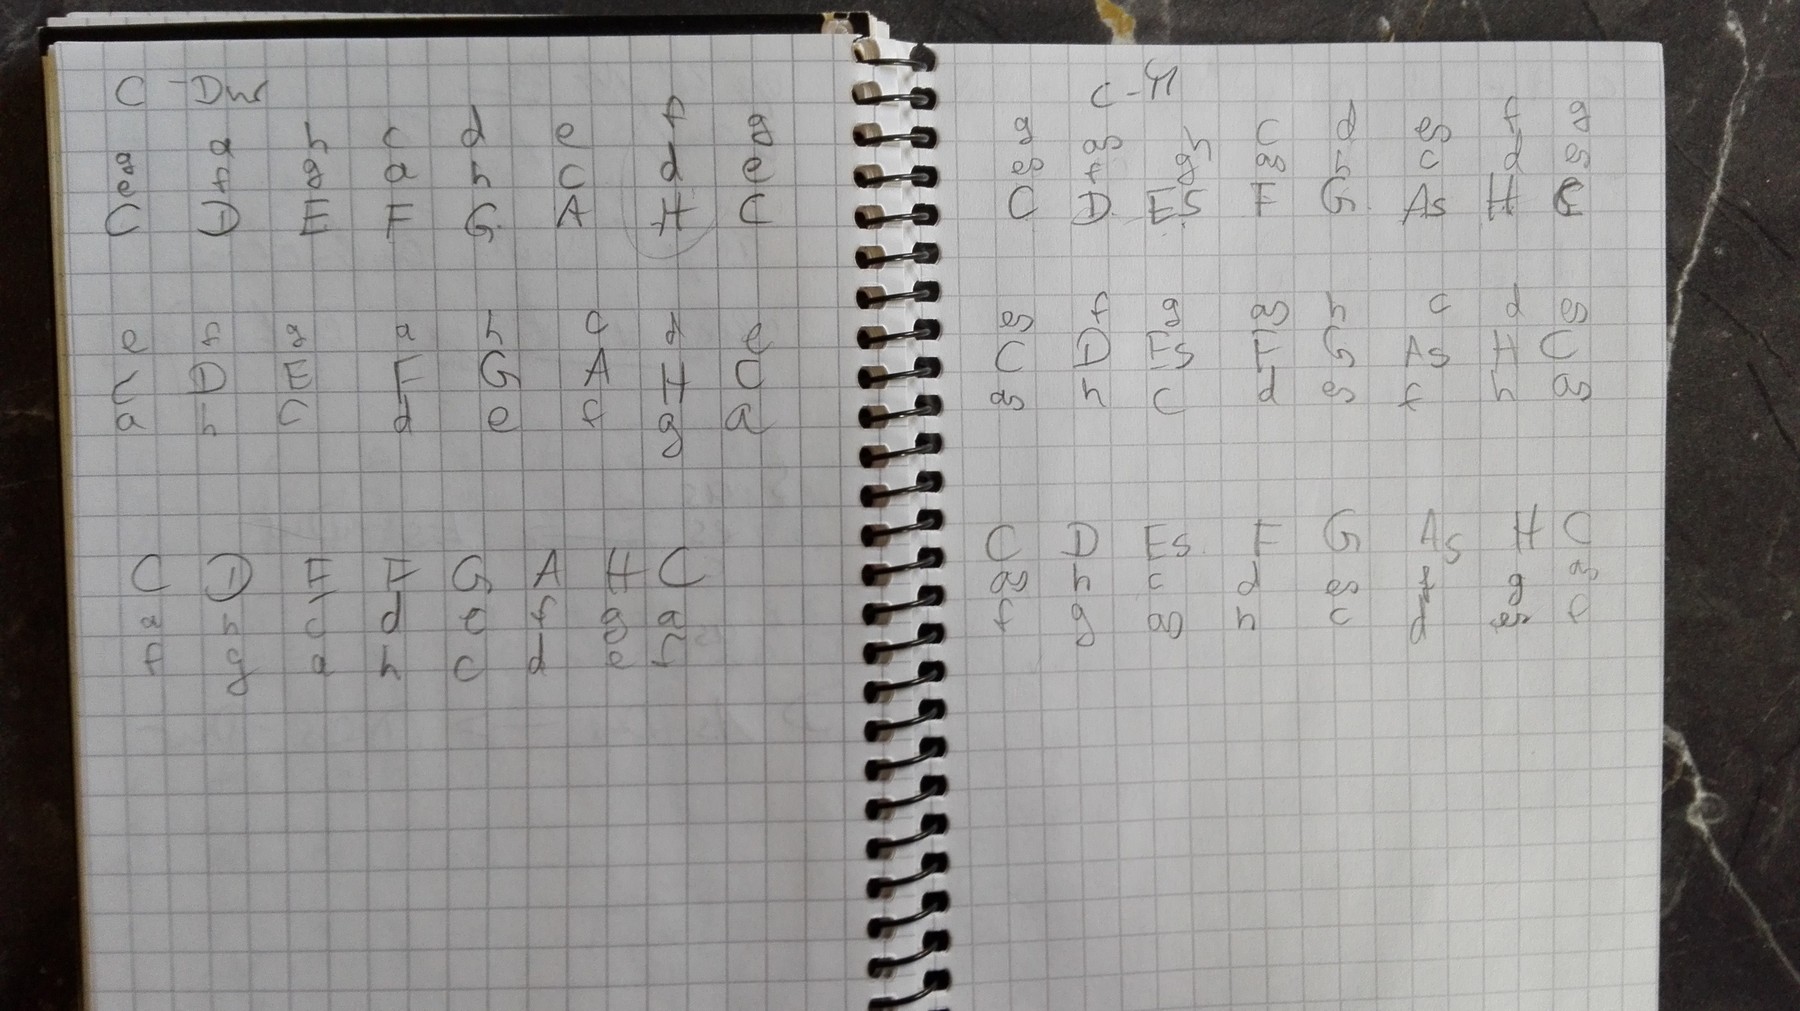 C-Dur
g a h c d e f g
e f g a h c d e
C D E F G A H C
e f g a h c d e
C D E F G A H C
a h c d e f g a
C D E F G A H C
a h c d e f g a
f g a h c d e f
g as h c d es f g
es f g as h c d es
C D Es F G As H C
es f g as h c d es
C D Es F G As H C
as h c d es f h as
C D Es F G As H C
as h c d es f g as
f g as h c d es f